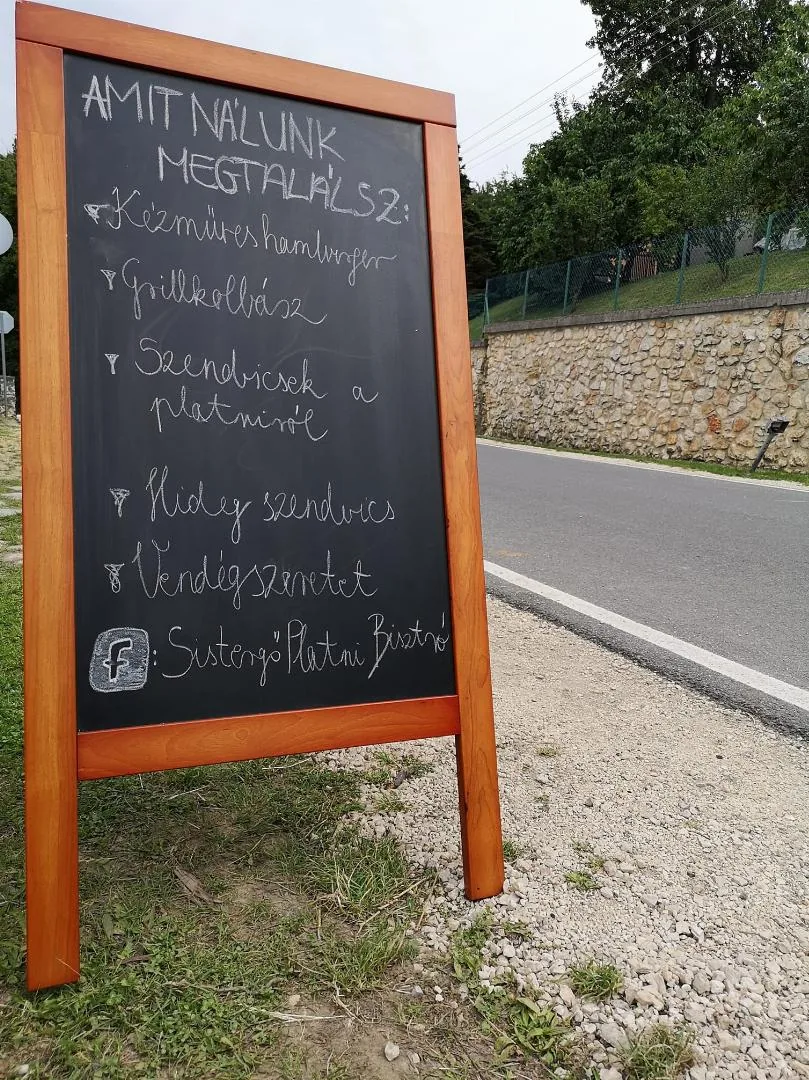 AMIT NÁLUNK
MEGTALÁLSZ:
Kézműves hamburger
Grillkolbász
Szendvicsek a
platniról
Hideg szendvics
Vendégszeretet
f: Sistergő Platni Bisztró